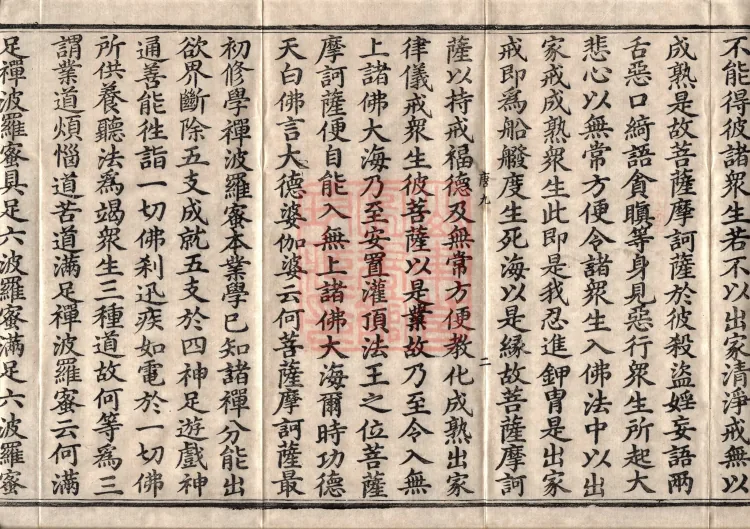 不能得彼諸衆生若不以出家清淨戒無以
成熟是故菩薩摩訶薩於彼殺盜婬妄語兩
舌惡口綺語貪瞋等身見惡行衆生所起大
悲心以無常方便令諸衆生入佛法中以出
家戒成熟衆生此即是我忍進鉀冑是出家
戒即爲船艥度生死海以是縁故菩薩摩訶
唐九 二
薩以持戒福德及無常方便教化成熟出家
律儀戒衆生彼菩薩以是業故乃至令入無
上諸佛大海乃至安置灌頂法王之位菩薩
摩訶薩便自能入無上諸佛大海爾時功德
天白佛言大德婆伽婆云何菩薩摩訶薩最
初修學禪波羅蜜本業學已知諸禪分能出
欲界斷除五支成就五支於四神足遊戲神
通善能徃詣一切佛刹迅疾如電於一切佛
所供養聽法爲竭衆生三種道故何等爲三
謂業道煩惱道苦道滿足禪波羅蜜云何滿
足禪波羅蜜具足六波羅蜜滿足六波羅蜜